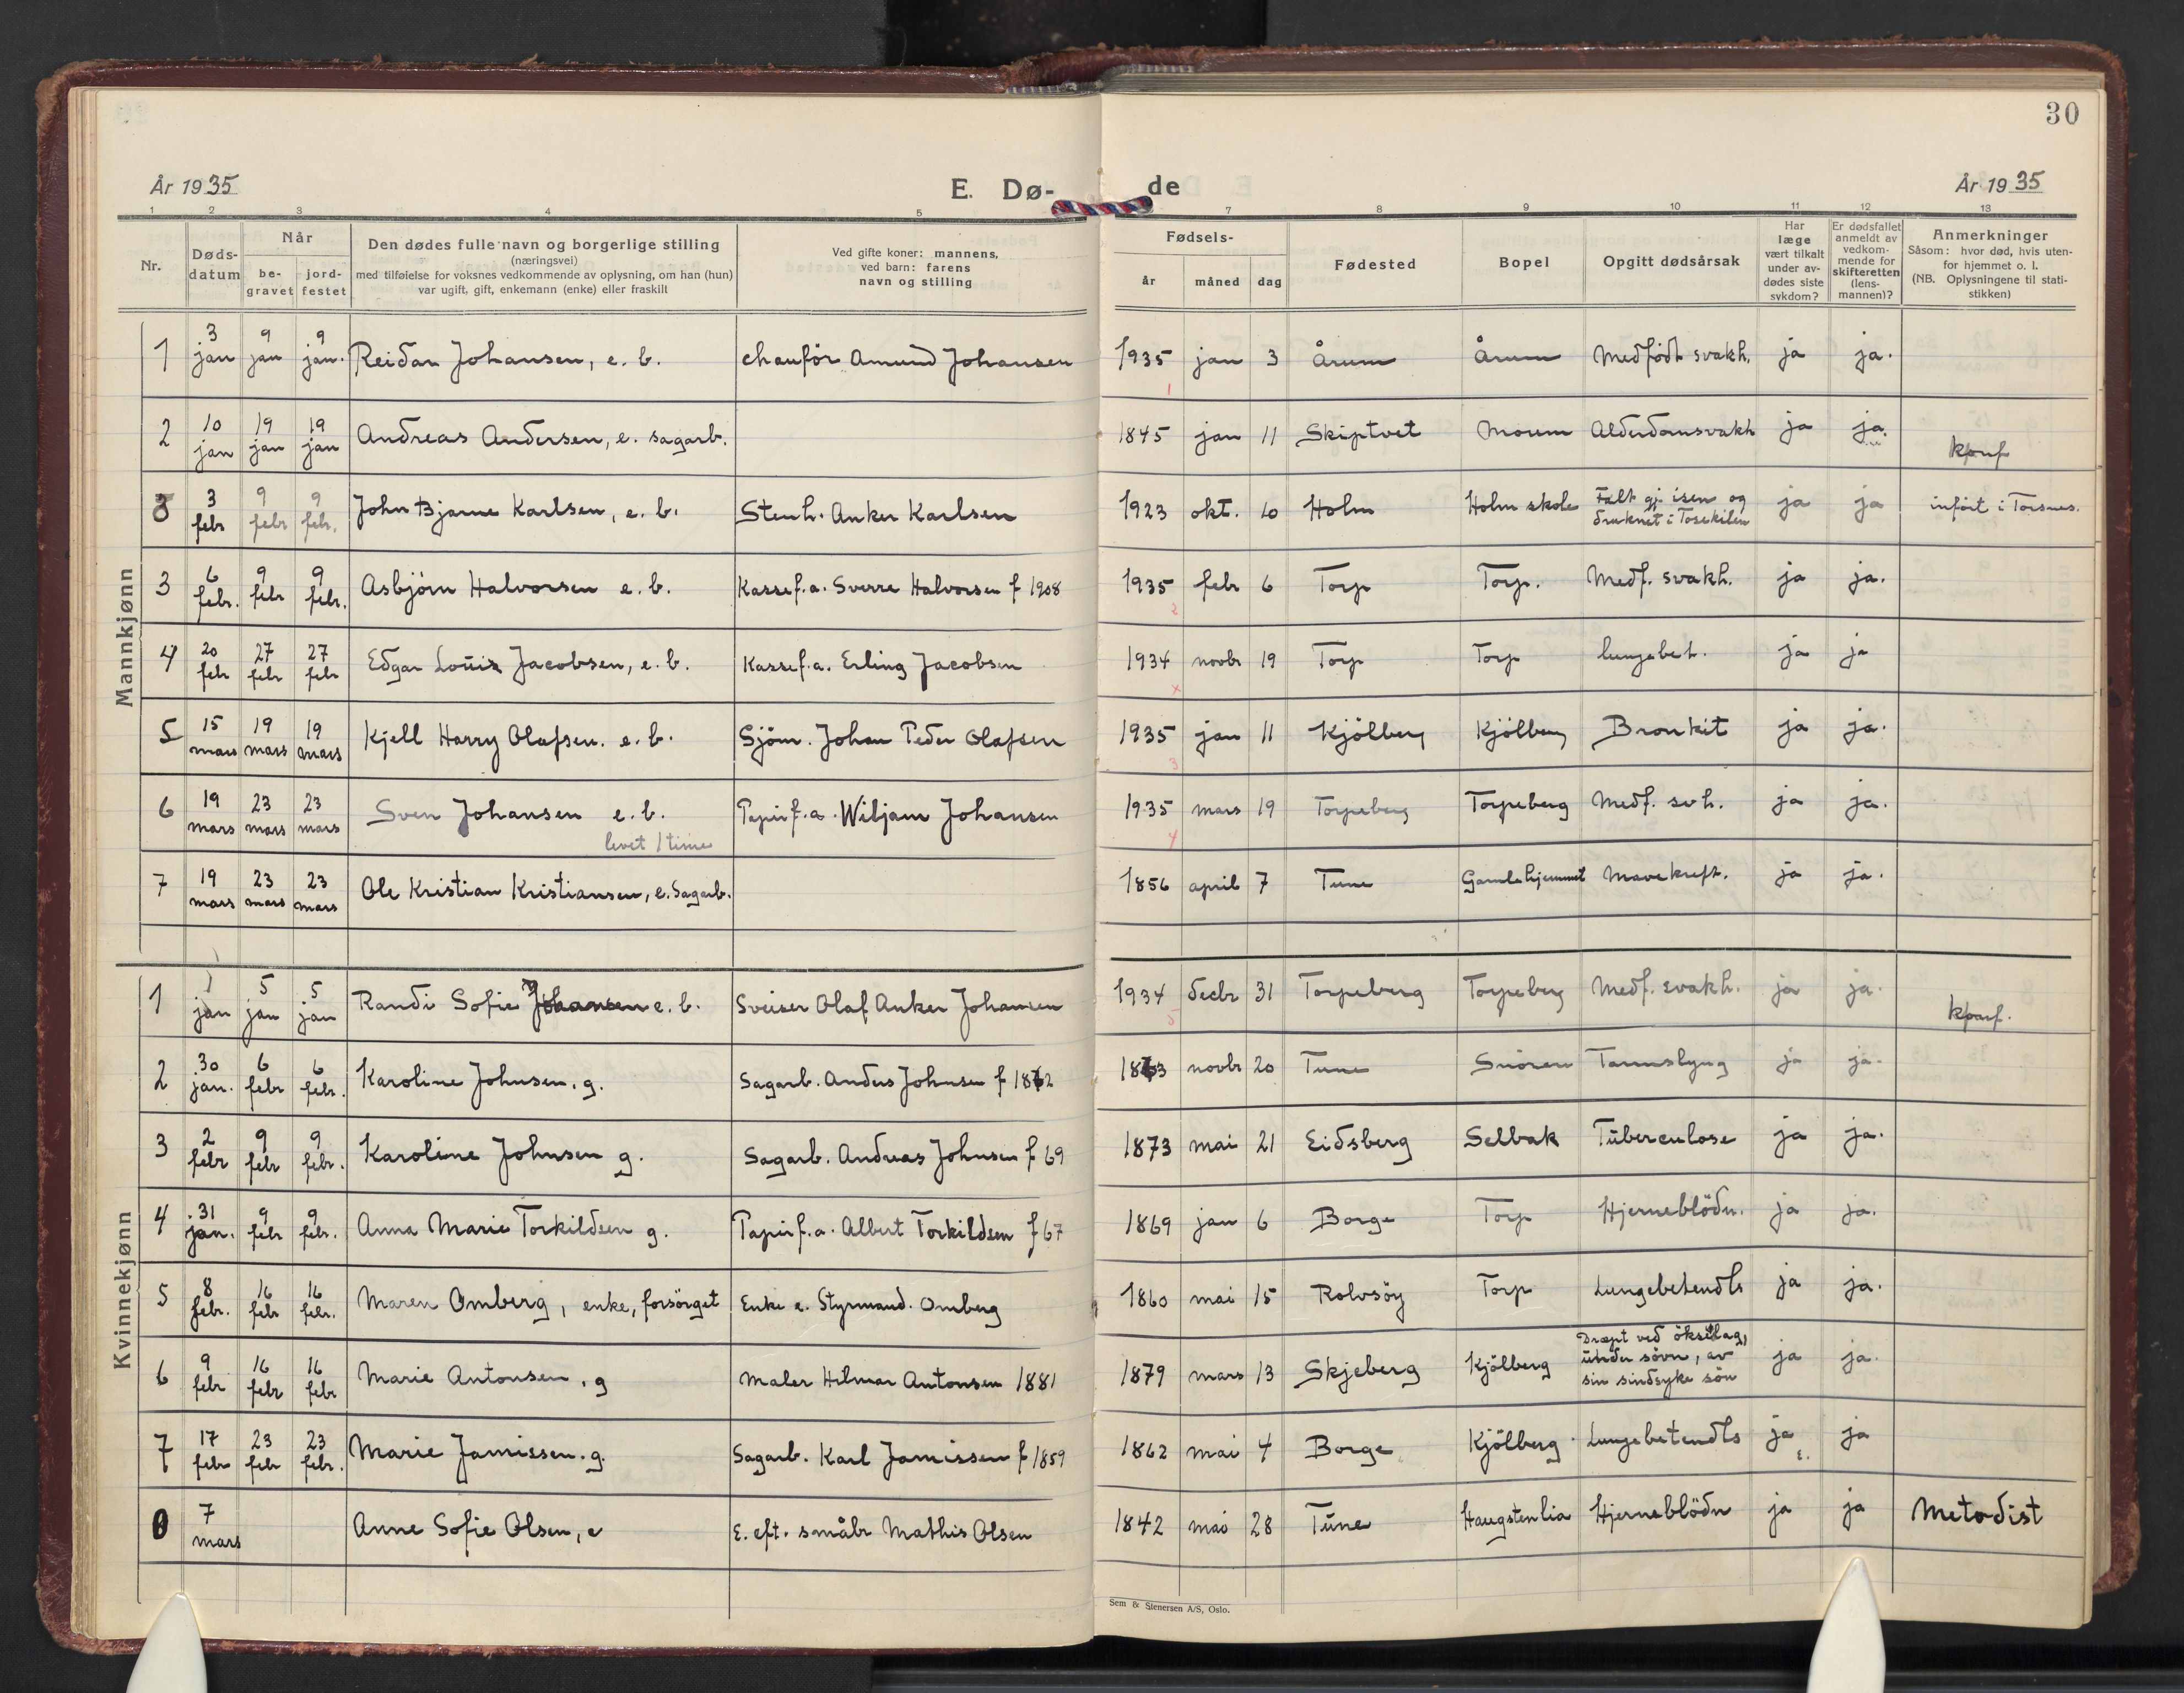 30
År 1935
E. Dø-
de
År 1935
1 2 3 4 5 6 7 8 9 10 11 12 13
Nr.
Døds-
datum
Når
be-
gravet
jord-
festet
Den dødes fulle navn og borgerlige stilling
(næringsvei)
med tilføielse for voksnes vedkommende av oplysning, om han (hun)
var ugift, gift, enkemann (enke) eller fraskilt
Ved gifte koner: mannens,
ved barn: farens
navn og stilling
Fødsels-
år måned dag
Fødested
Bopel
Opgitt dødsårsak
Har
læge
vært tilkalt
under av-
dødes siste
sykdom?
Er dødsfallet
anmeldt av
vedkom-
mende for
skifteretten
(lens-
mannen)?
Anmerkninger
Såsom: hvor død, hvis uten-
for hjemmet o. l.
(NB. Oplysningene til stati-
stikken)
Mannkjønn
1 3 jan 9 jan 9 jan. Reidar Johansen, e. b. chauför Amund Johansen 1935 jan 3 Årum Årum Medfödt svakh. ja ja.
1
2 10 jan 19 jan 19 jan Andreas Andersen, e. sagarb. 1845 jan 11 Skiptvet Moum Alderdomsvakh ja ja.
3 febr 9 febr 9 febr. John Bjarne Karlsen, e. b. Stenh. Anker Karlsen 1923 okt. 10 Holm Holm skole Falt gj. isen og
druknet i Tosekilen ja ja inført i Torsnes.
3 6 febr. 9 febr 9 febr. Asbjörn Halvorsen e. b. Kassef.a. Sverre Halvorsen f 1908 1935 febr 6 Torp Torp. Medf. svakh. ja ja.
2
4 20 febr 27 febr 27 febr Edgar Louis Jacobsen, e. b. Kassef.a. Erling Jacobsen 1934 novbr 19 Torp Torp lungebet. ja ja
x
5 15 mars 19 mars 19 mars Kjell Harry Olafsen. e. b. Sjöm. Johan Peder Olafsen 1935 jan 11 Kjölberg Kjölberg Bronkit ja ja.
3
6 19 mars 23 mars 23 mars Sven Johansen e. b. Papirf.a. Wiljam Johansen 1935 mars 19 Torpeberg Torpeberg Medf. svh. ja ja.
levet 1 time
4
7 19 mars 23 mars 23 mars Ole Kristian Kristiansen, e. Sagarb. 1856 april 7 Tune Gamlehjemmet Mavekreft. ja ja.
Kvinnekjønn
1 1 jan 5 jan 5 jan Randi Sofie Johansen e. b. Sveiser Olaf Anker Johansen 1934 decbr 31 Torpeberg Torpeberg Medf. svakh. ja ja.
5
2 30 jan. 6 febr 6 febr. Karoline Johnsen. g. Sagarb. Anders Johnsen f 1862 1863 novbr 20 Tune Snören Tarmslyng ja ja.
3 2 febr 9 febr 9 febr. Karoline Johnsen g. Sagarb. Andreas Johnsen f 69 1873 mai 21 Eidsberg Selbak Tuberculose ja ja.
4 31 jan. 9 febr 9 febr. Anna Marie Torkildsen g. Papirf.a. Albert Torkildsen f 67 1869 jan 6 Borge Torp Hjerneblödn. ja ja.
5 8 febr. 16 febr 16 febr. Maren Omberg, enke, forsörget Enke e. Styrmand. Omberg 1860 mai 15 Rolvsöy Torp Lungebetendls ja ja.
6 9 febr 16 febr 16 febr Marie Antonsen, g Maler Hilmar Antonsen 1881 1879 mars 13 Skjeberg Kjölberg Dræpt ved økseslag,
under sövn, av
sin sindsyke sön ja ja.
7 17 febr 23 febr 23 febr. Marie Jamissen. g. Sagarb. Karl Jamissen f 1859 1862 mai 4 Borge Kjölberg Lungebetendls ja ja
0 7 mars Anne Sofie Olsen, e E. eft. småbr Mathis Olsen 1842 mai 28 Tune Haugstenlia Hjerneblödn ja ja Metodist
Sem & Stenersen A/S, Oslo.